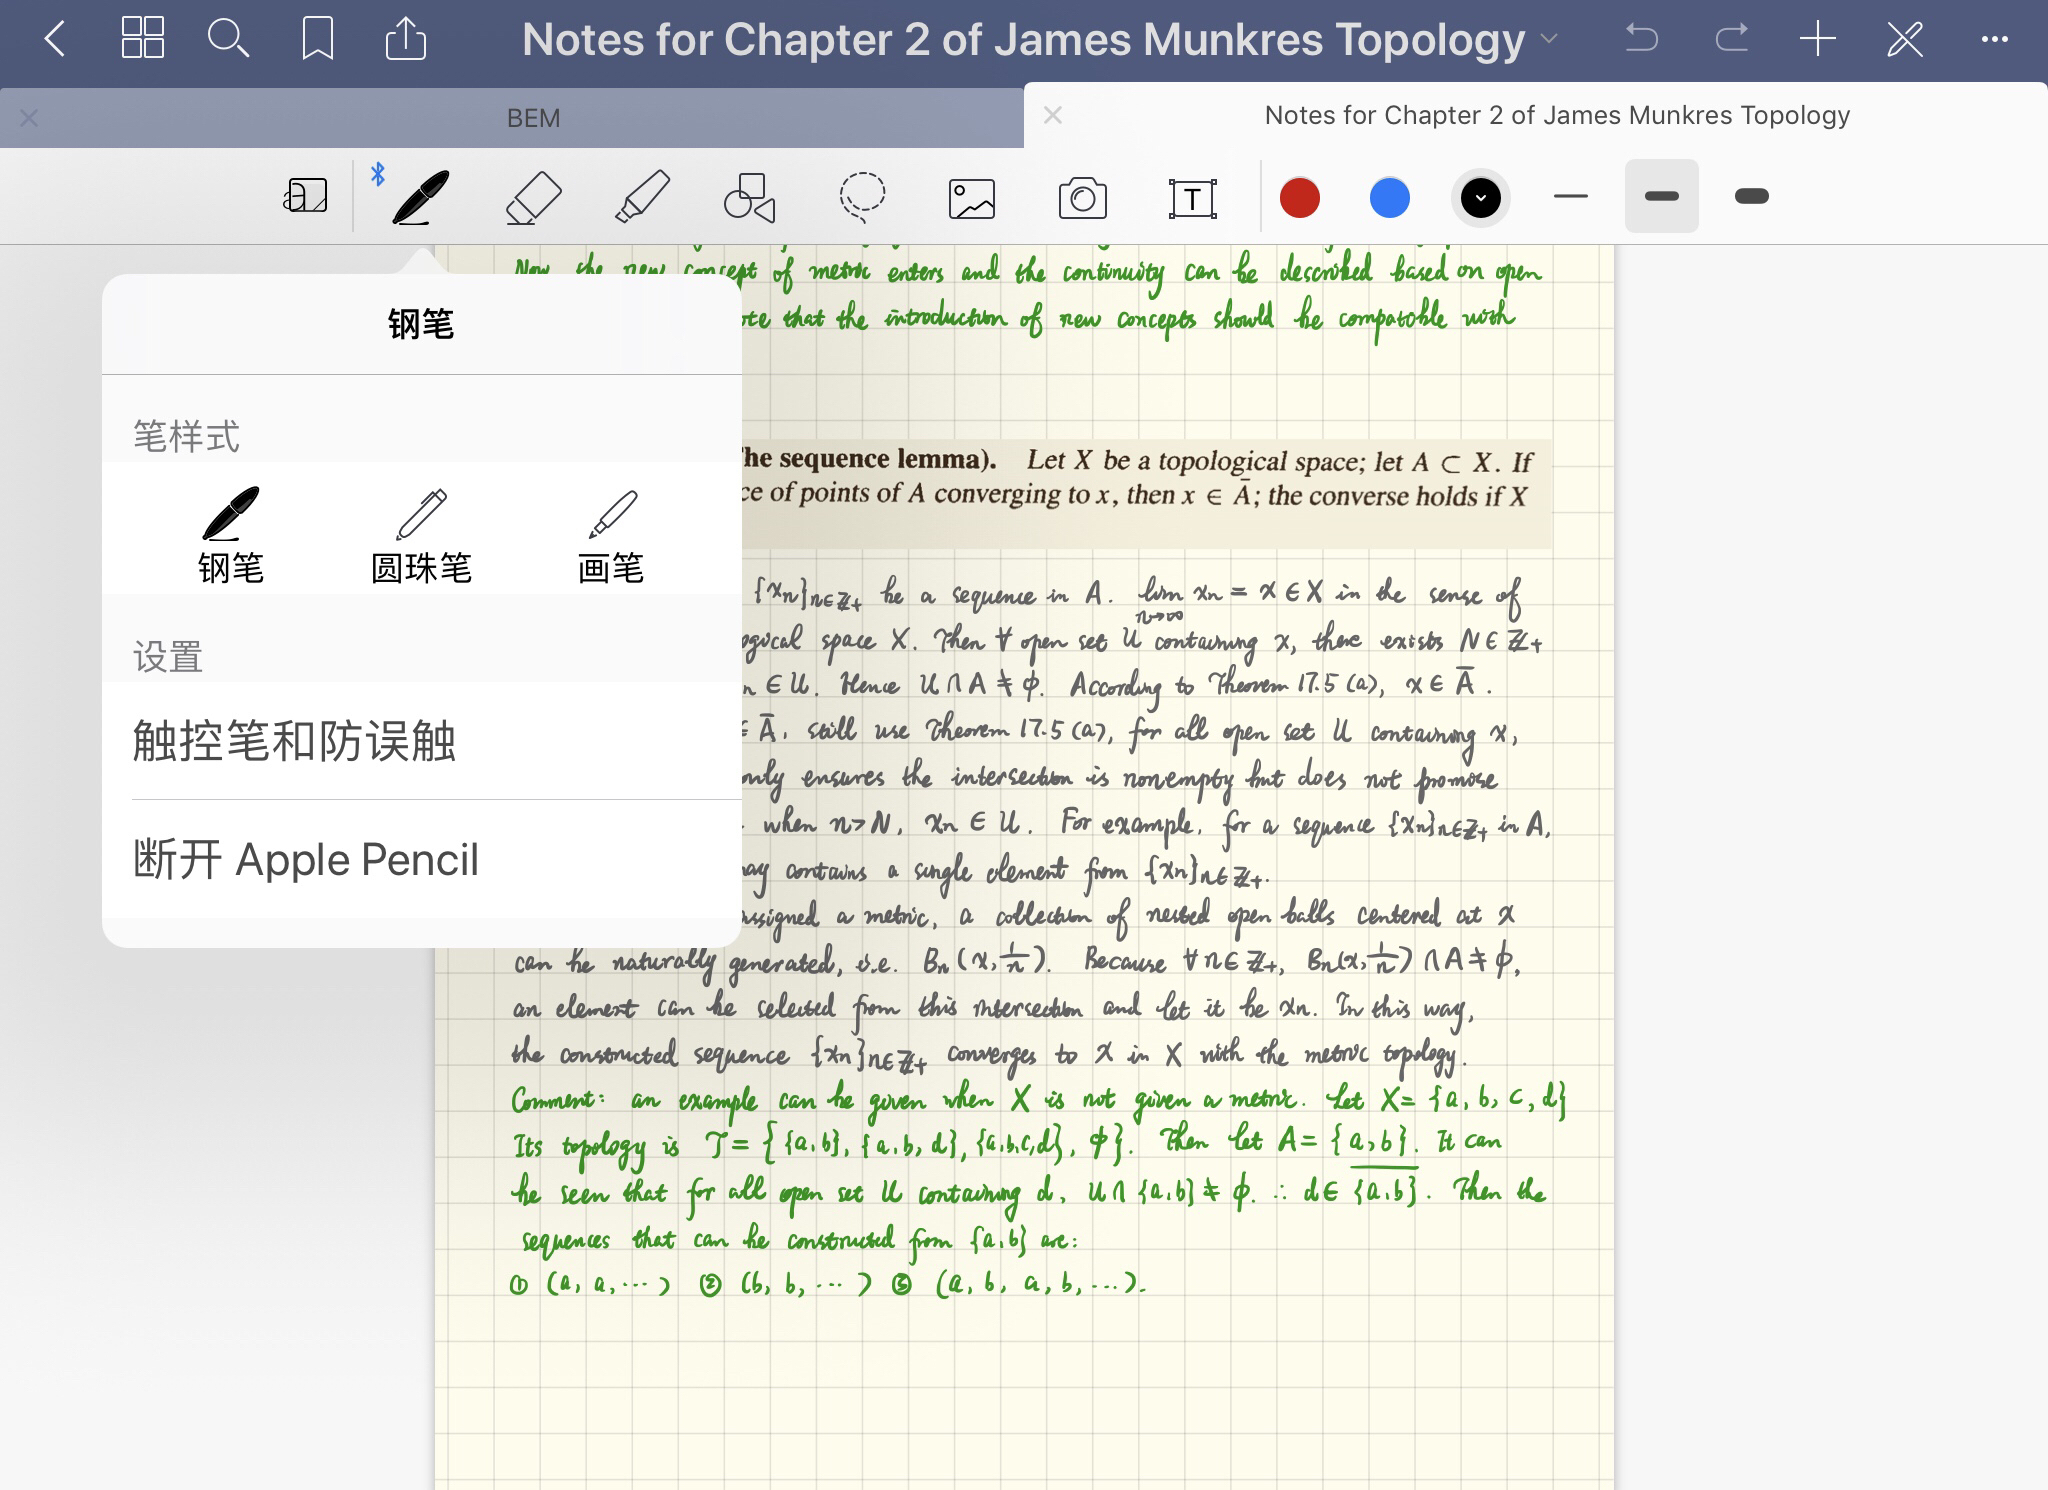 Notes for Chapter 2 of James Munkres Topology
BEM
Notes for Chapter 2 of James Munkres Topology
a
T
Now the new concept of metric enters and the continuity can be described based on open
钢笔
ote that the introduction of new concepts should be compatible with
笔样式
he sequence lemma). Let X be a topological space; let A ⊂ X. If
ce of points of A converging to x, then x ∈ Ā; the converse holds if X
钢笔 圆珠笔 画笔
{xn}n∈ℤ+ be a sequence in A. lim n→∞ xn = x ∈ X in the sense of
设置
ogical space X. Then ∀ open set U containing x, there exists N ∈ ℤ+
n ∈ U. Hence U ∩ A ≠ ϕ. According to Theorem 17.5 (a), x ∈ Ā.
触控笔和防误触
∈ Ā, still use Theorem 17.5 (a), for all open set U containing x,
only ensures the intersection is nonempty but does not promise
when n > N, xn ∈ U. For example, for a sequence {xn}n∈ℤ+ in A,
断开 Apple Pencil
ay contains a single element from {xn}n∈ℤ+.
assigned a metric, a collection of nested open balls centered at x
can be naturally generated, i.e. Bn(x, 1/n). Because ∀ n ∈ ℤ+, Bn(x, 1/n) ∩ A ≠ ϕ,
an element can be selected from this intersection and let it be xn. In this way,
the constructed sequence {xn}n∈ℤ+ converges to x in X with the metric topology.
Comment: an example can be given when X is not given a metric. Let X = {a, b, c, d}
Its topology is T = {{a,b}, {a,b,d}, {a,b,c,d}, ϕ}. Then let A = {a,b}. It can
be seen that for all open set U containing d, U ∩ {a,b} ≠ ϕ. ∴ d ∈ {a,b}. Then the
sequences that can be constructed from {a,b} are:
① (a, a, ...) ② (b, b, ...) ③ (a, b, a, b, ...).